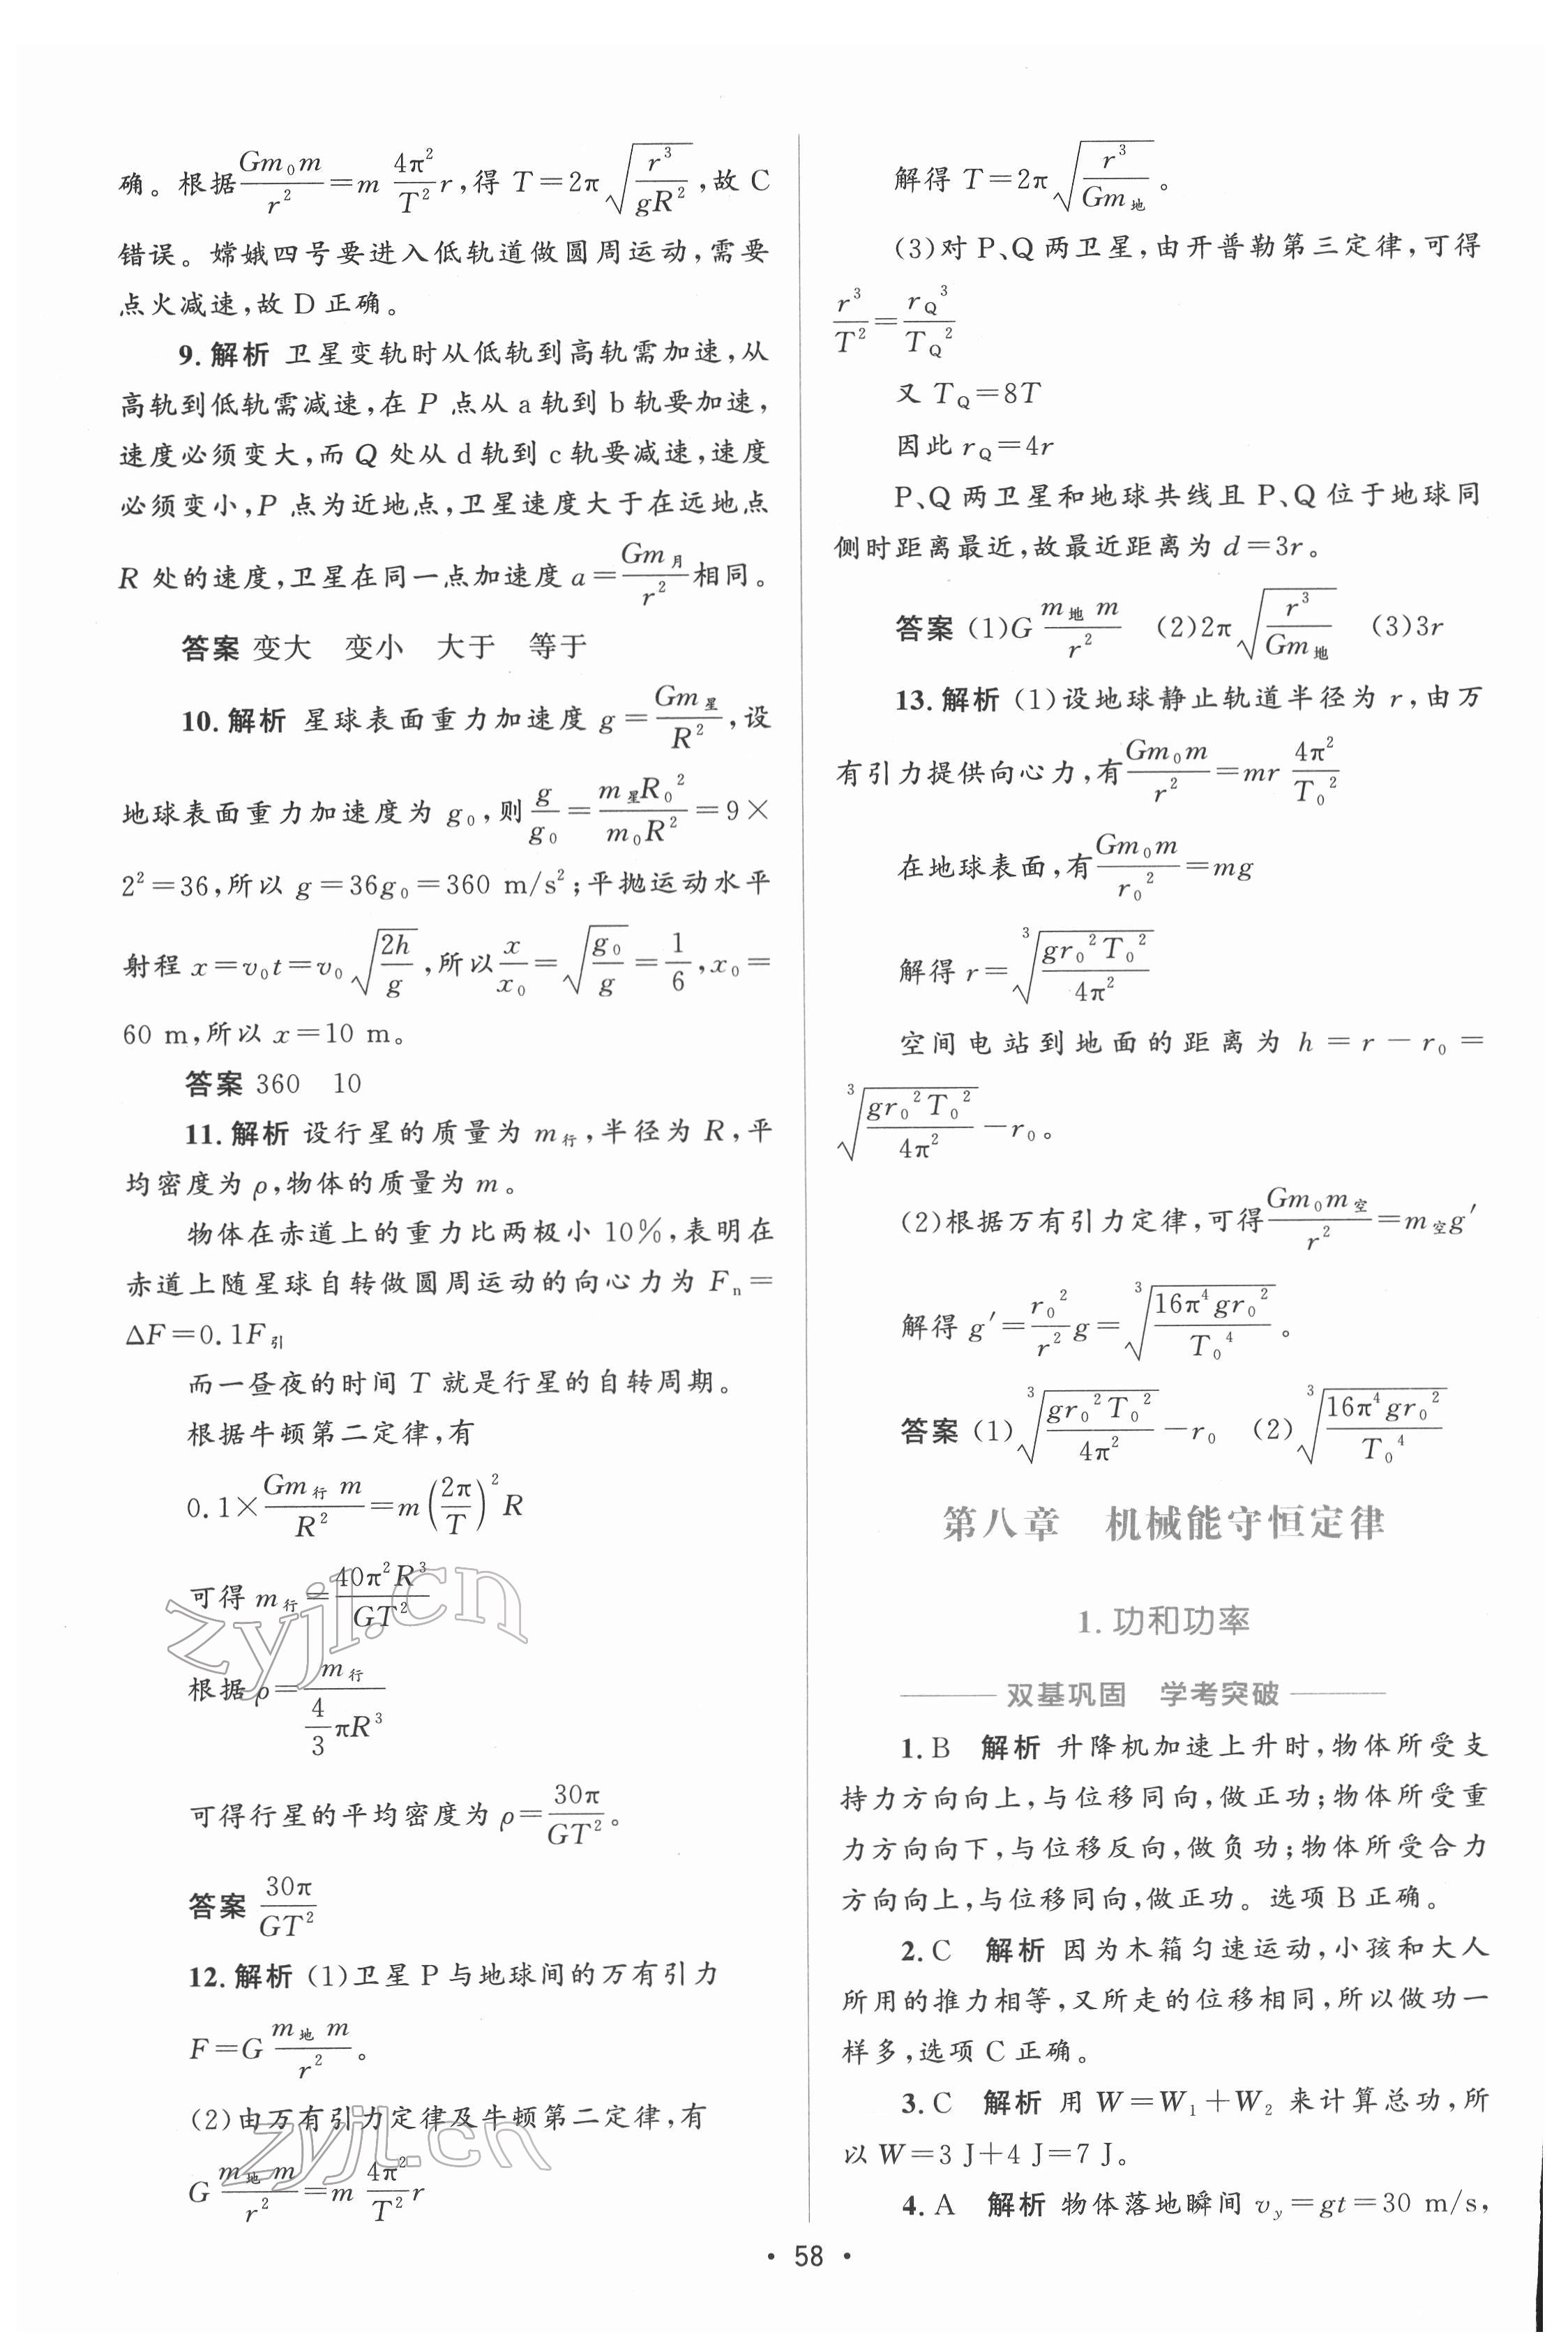 确。根据\frac{Gm_0m}{r^2}=m\frac{4π^2}{T^2}r,得 T=2π\sqrt{\frac{r^3}{gR^2}},故 C
错误。嫦娥四号要进入低轨道做圆周运动,需要
点火减速,故 D 正确。
9. 解析 卫星变轨时从低轨到高轨需加速,从
高轨到低轨需减速,在 P 点从 a 轨到 b 轨要加速,
速度必须变大,而 Q 处从 d 轨到 c 轨要减速,速度
必须变小,P 点为近地点,卫星速度大于在远地点
R 处的速度,卫星在同一点加速度 a=\frac{Gm_月}{r^2}相同。
答案 变大 变小 大于 等于
10. 解析 星球表面重力加速度 g=\frac{Gm_星}{R^2},设
地球表面重力加速度为 g_0,则\frac{g}{g_0}=\frac{m_星R_0^2}{m_0R^2}=9×
2^2=36,所以 g=36g_0=360 m/s^2;平抛运动水平
射程 x=v_0t=v_0\sqrt{\frac{2h}{g}},所以\frac{x}{x_0}=\sqrt{\frac{g_0}{g}}=\frac{1}{6},x_0=
60 m,所以 x=10 m。
答案 360 10
11. 解析 设行星的质量为 m_行,半径为 R,平
均密度为 ρ,物体的质量为 m。
物体在赤道上的重力比两极小 10%,表明在
赤道上随星球自转做圆周运动的向心力为 F_n=
ΔF=0.1F_引
而一昼夜的时间 T 就是行星的自转周期。
根据牛顿第二定律,有
0.1×\frac{Gm_行 m}{R^2}=m(\frac{2π}{T})^2R
可得 m_行=\frac{40π^2R^3}{GT^2}
根据 ρ=\frac{m_行}{\frac{4}{3}πR^3}
可得行星的平均密度为 ρ=\frac{30π}{GT^2}。
答案 \frac{30π}{GT^2}
12. 解析 (1)卫星 P 与地球间的万有引力
F=G\frac{m_地 m}{r^2}。
(2)由万有引力定律及牛顿第二定律,有
G\frac{m_地 m}{r^2}=m\frac{4π^2}{T^2}r
解得 T=2π\sqrt{\frac{r^3}{Gm_地}}。
(3)对 P、Q 两卫星,由开普勒第三定律,可得
\frac{r^3}{T^2}=\frac{r_Q^3}{T_Q^2}
又 T_Q=8T
因此 r_Q=4r
P、Q 两卫星和地球共线且 P、Q 位于地球同
侧时距离最近,故最近距离为 d=3r。
答案 (1)G\frac{m_地 m}{r^2} (2)2π\sqrt{\frac{r^3}{Gm_地}} (3)3r
13. 解析 (1)设地球静止轨道半径为 r,由万
有引力提供向心力,有\frac{Gm_0m}{r^2}=mr\frac{4π^2}{T_0^2}
在地球表面,有\frac{Gm_0m}{r_0^2}=mg
解得 r=\sqrt[3]{\frac{gr_0^2T_0^2}{4π^2}}
空间电站到地面的距离为 h=r-r_0=
\sqrt[3]{\frac{gr_0^2T_0^2}{4π^2}}-r_0。
(2)根据万有引力定律,可得\frac{Gm_0m_空}{r^2}=m_空g'
解得 g'=\frac{r_0^2}{r^2}g=\sqrt[3]{\frac{16π^4gr_0^2}{T_0^4}}。
答案 (1)\sqrt[3]{\frac{gr_0^2T_0^2}{4π^2}}-r_0 (2)\sqrt[3]{\frac{16π^4gr_0^2}{T_0^4}}
第八章 机械能守恒定律
1. 功和功率
双基巩固 学考突破
1. B 解析 升降机加速上升时,物体所受支
持力方向向上,与位移同向,做正功;物体所受重
力方向向下,与位移反向,做负功;物体所受合力
方向向上,与位移同向,做正功。选项 B 正确。
2. C 解析 因为木箱匀速运动,小孩和大人
所用的推力相等,又所走的位移相同,所以做功一
样多,选项 C 正确。
3. C 解析 用 W=W_1+W_2 来计算总功,所
以 W=3 J+4 J=7 J。
4. A 解析 物体落地瞬间 v_y=gt=30 m/s,
· 58 ·
zyjl.cn
zyjl.cn